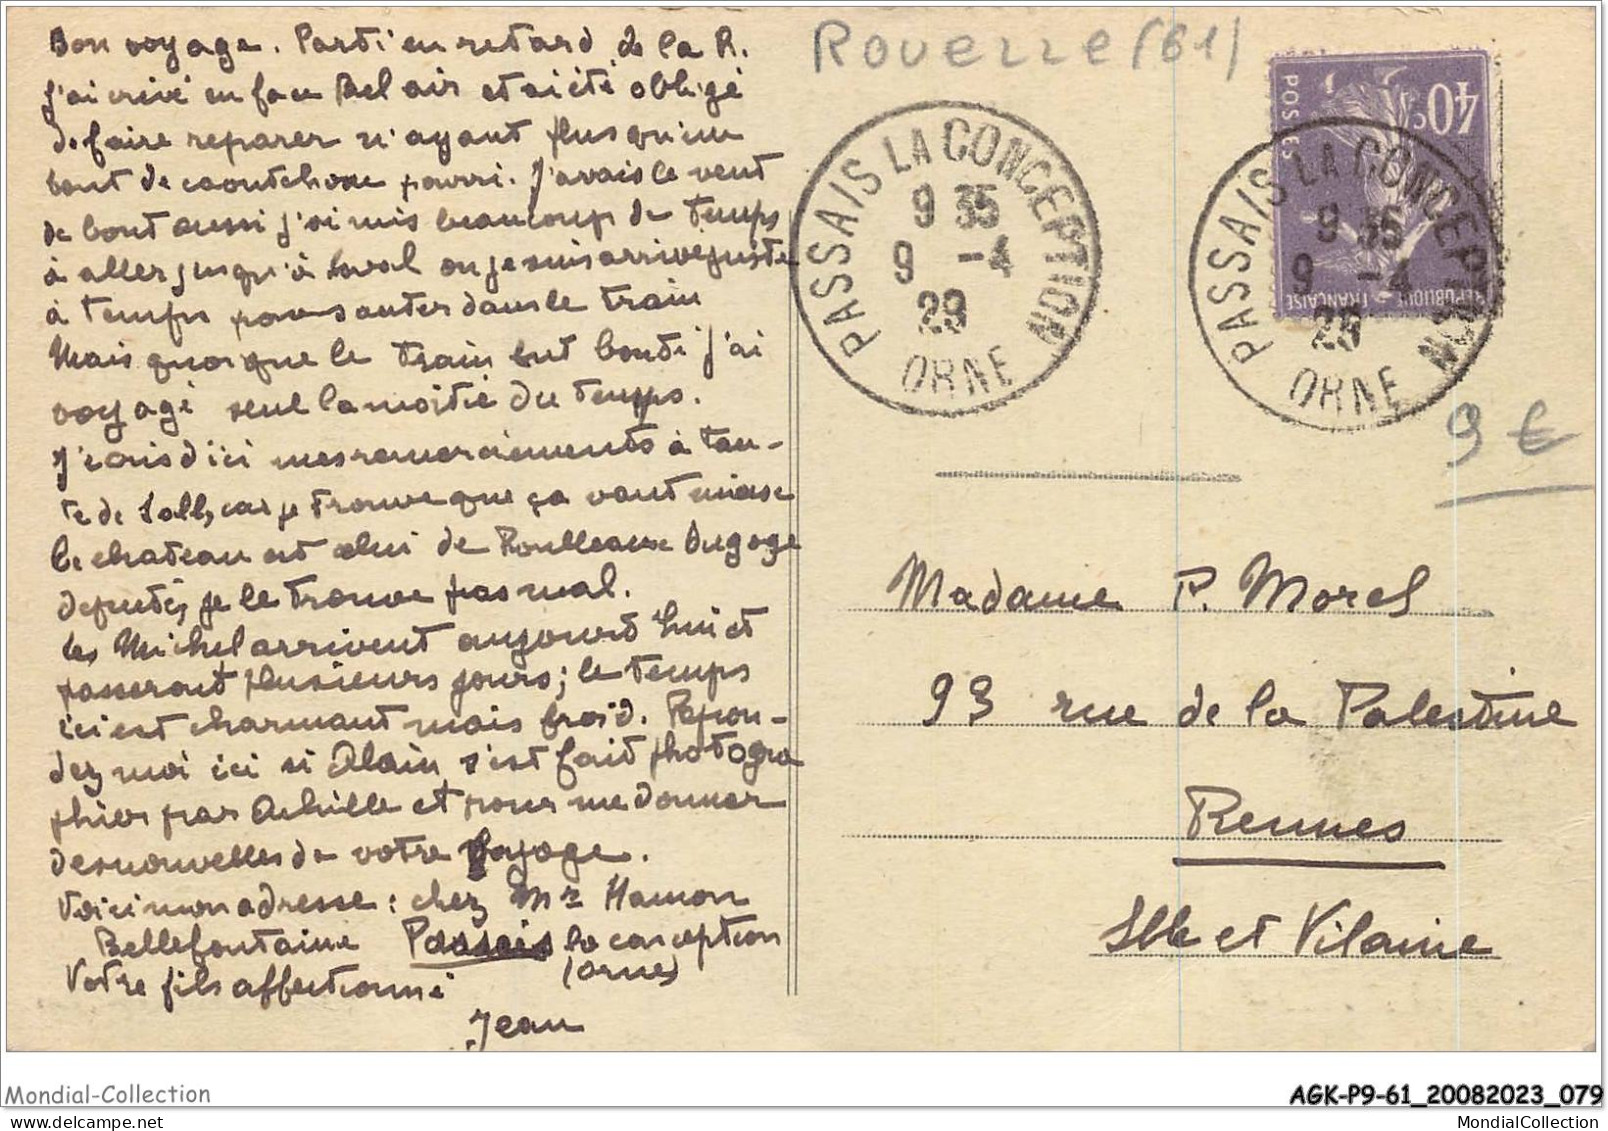 Bon voyage. Parti en retard de la R.
j'ai crevé en face Bel air et ai été obligé
de faire reparer n'ayant plus qu'un
bout de caoutchouc pourri. J'avais le vent
de bout aussi j'ai mis beaucoup de temps
à aller jusqu'à Laval ou je suis arrivé juste
à temps pour sauter dans le train
Mais quoique le train fut bondé j'ai
voyagé seul la moitié du temps.
J'écris d'ici mes remerciements à tan-
te de car je trouve que ça vaut mieux
le chateau est celui de Roulleaux Dugage
deputé, je le trouve pas mal.
les Michel arrivent aujourd'hui et
passeront plusieurs jours; le temps
ici est charmant mais froid. Repon-
dez moi ici si Alain s'est fait photogra
phier par Achille et pour me donner
des nouvelles de votre Voyage.
Voici mon adresse : chez Mr Hamon
Bellefontaine Passais la conception
(Orne)
Votre fils affectionné
Jean
Rouelle (61)
POSTES
40c
REPUBLIQUE FRANÇAISE
PASSAIS LA CONCEPTION
9 35
9 -4
29
ORNE
PASSAIS LA CONCEPTION
9 35
9 -4
29
ORNE
9 €
Madame P. Morel
93 rue de la Palestine
Rennes
Ille et Vilaine
Mondial-Collection
AGK-P9-61_20082023_079
MondialCollection